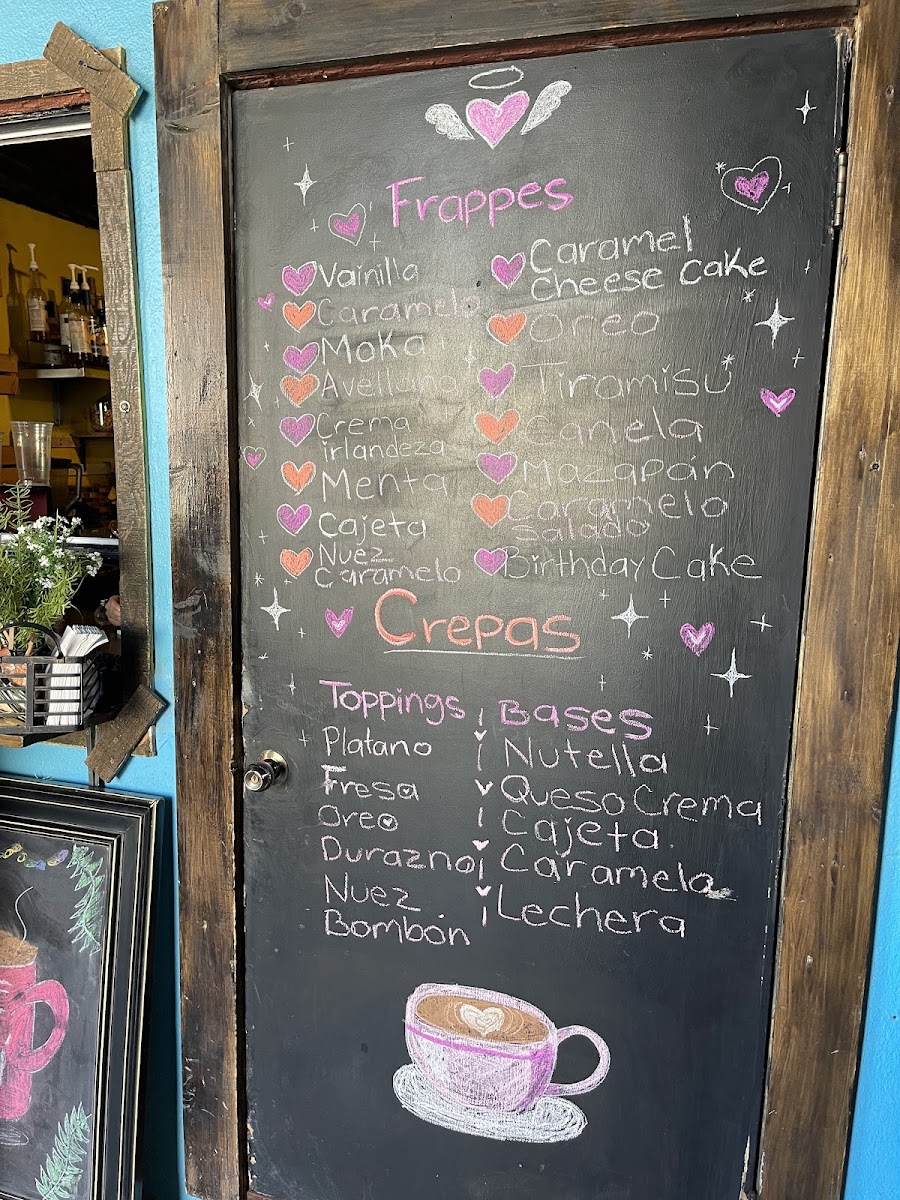 Frappes
Vainilla
Caramelo
Moka
Avellana
Crema
irlandeza
Menta
Cajeta
Nuez
Caramelo
Caramel
Cheese cake
Oreo
Tiramisú
Canela
Mazapán
Caramelo
Salado
Birthday Cake
Crepas
Toppings
Platano
Fresa
Oreo
Durazno
Nuez
Bombón
Bases
Nutella
Queso Crema
Cajeta
Caramelo
Lechera